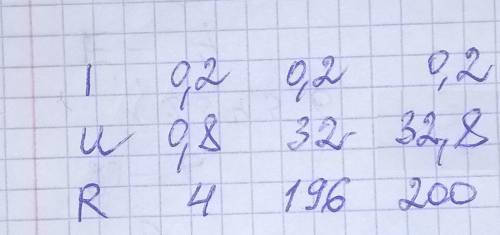 I 0,2 0,2 0,2
U 0,8 32 32,8
R 4 196 200